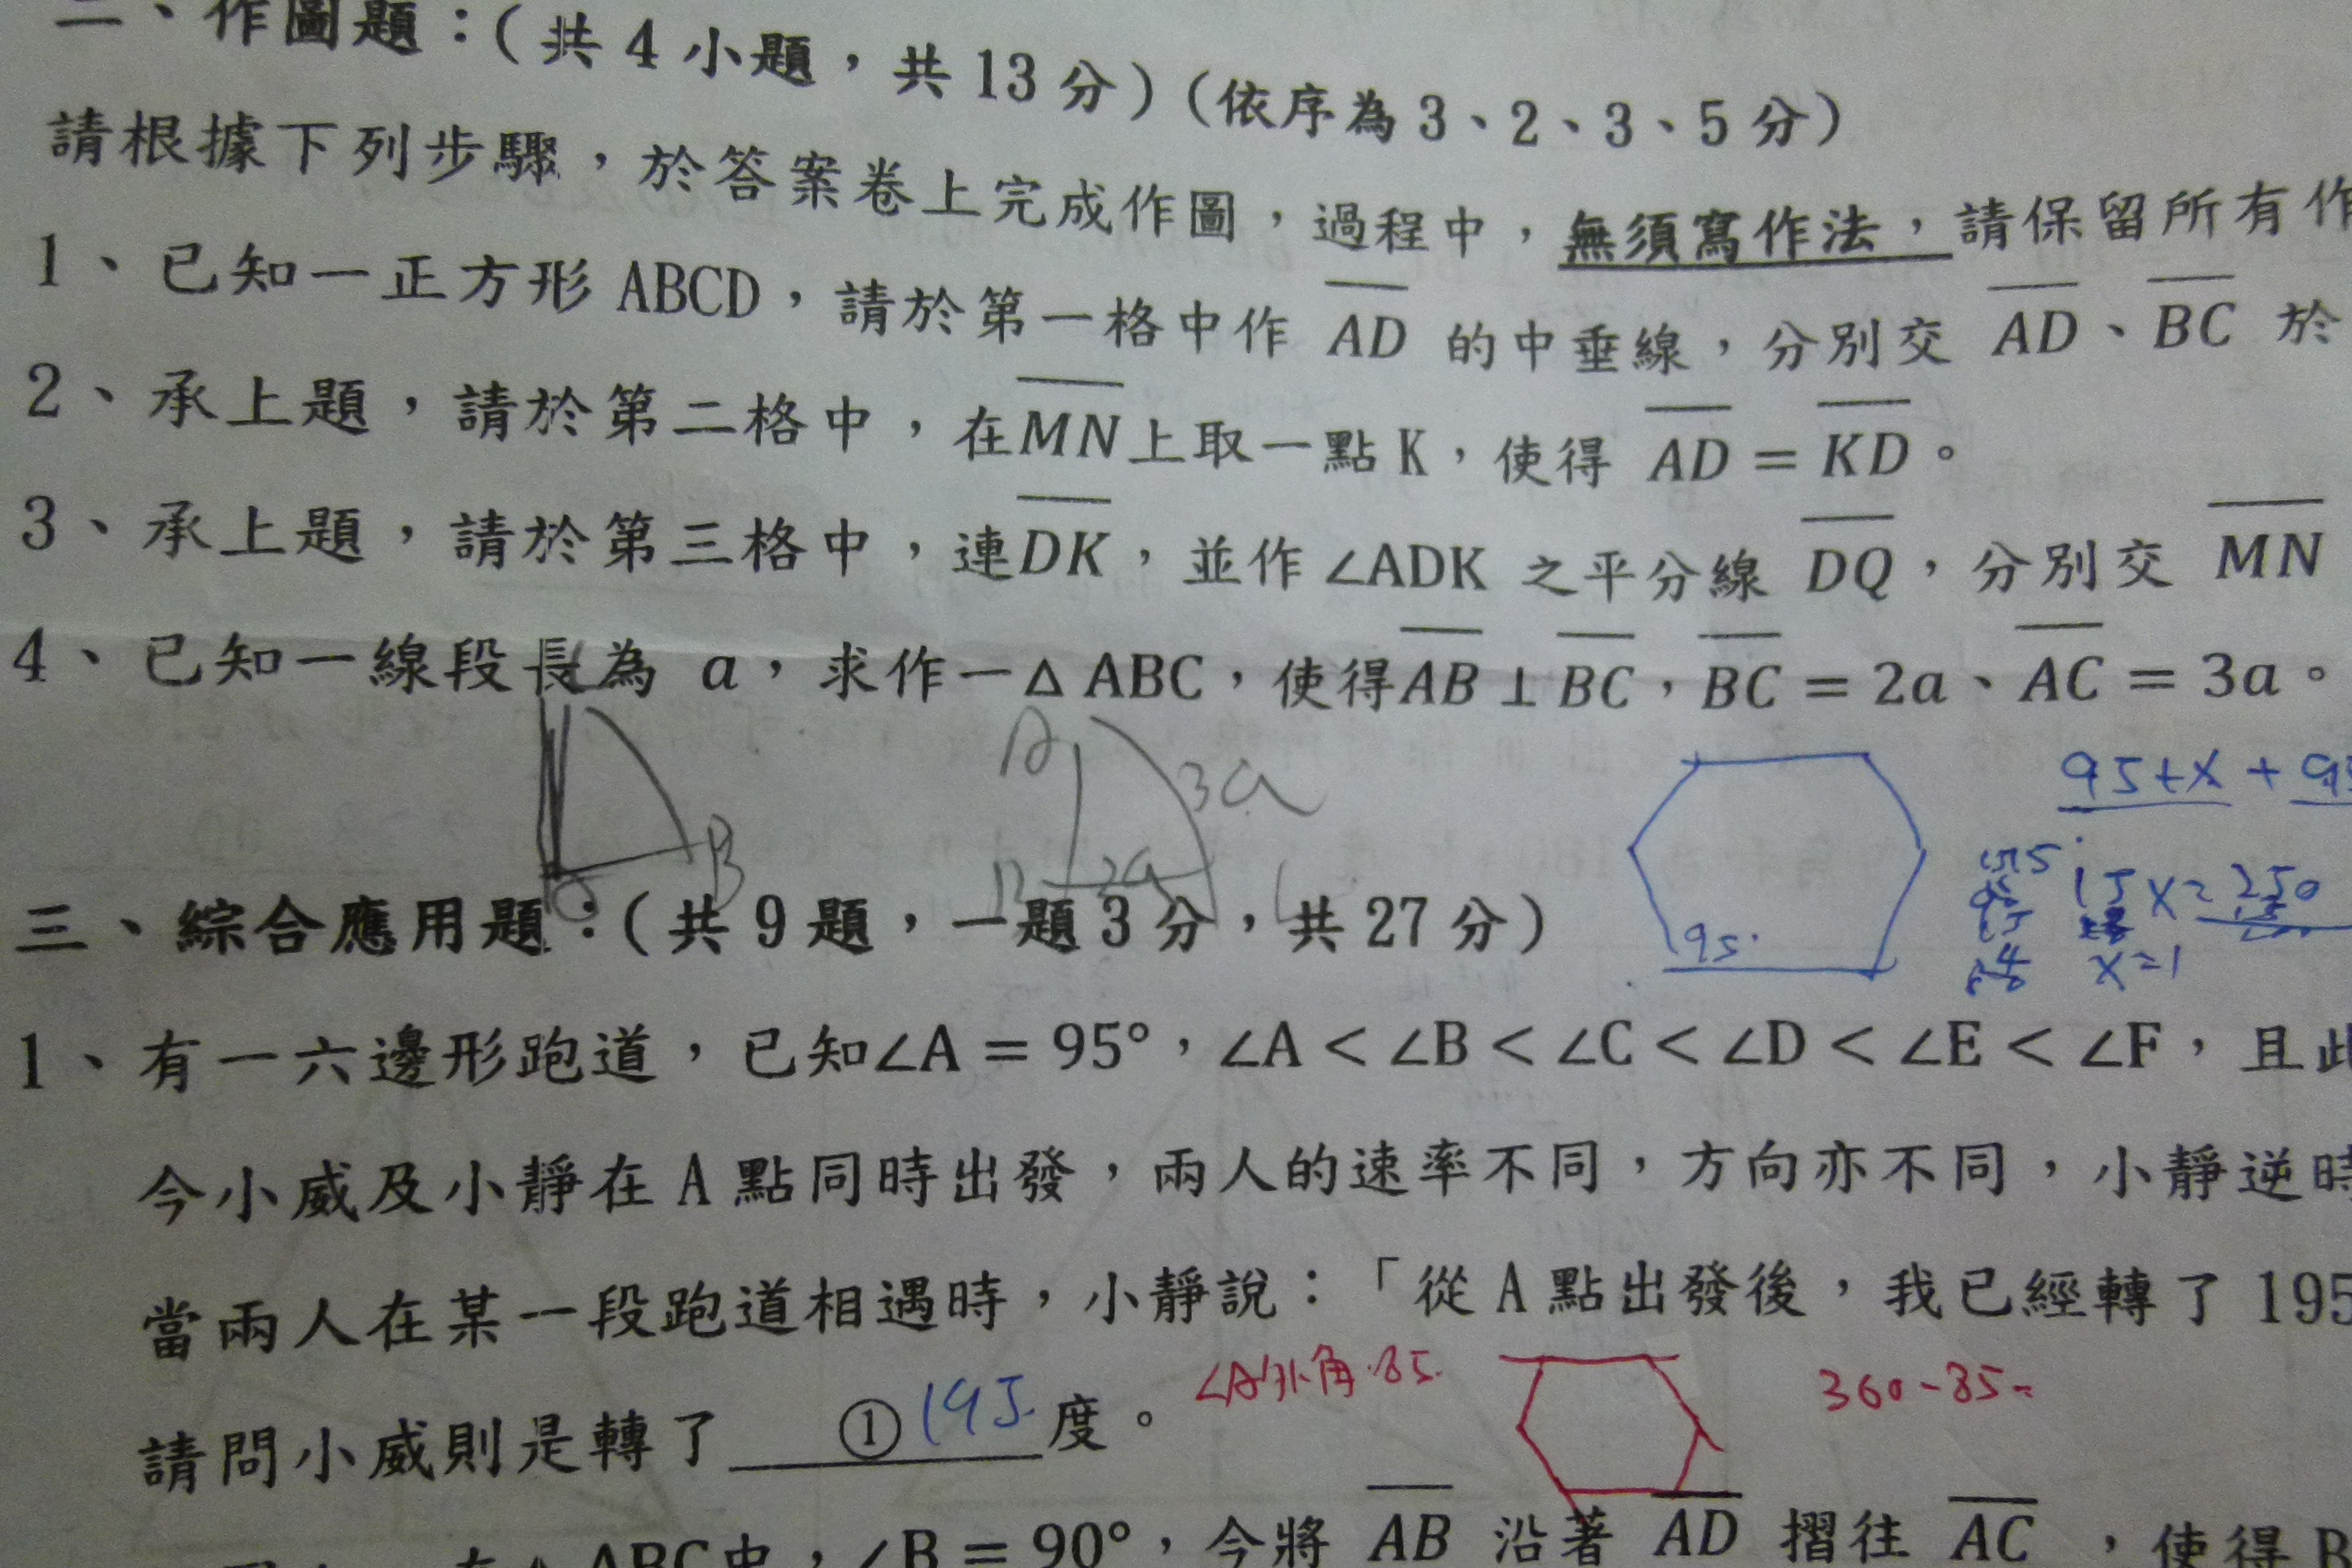 二、作圖題：(共 4 小題，共 13 分)(依序為 3、2、3、5 分)
請根據下列步驟，於答案卷上完成作圖，過程中，無須寫作法，請保留所有作
1、已知一正方形 ABCD，請於第一格中作 AD 的中垂線，分別交 AD、BC 於
2、承上題，請於第二格中，在MN上取一點 K，使得 AD = KD。
3、承上題，請於第三格中，連DK，並作 ∠ADK 之平分線 DQ，分別交 MN
4、已知一線段長為 a，求作一△ ABC，使得AB ⊥ BC，BC = 2a、AC = 3a。
A 3a
95+x + 95
B
B 2a
15x = 250
95°
x=1
三、綜合應用題：(共 9 題，一題 3 分，共 27 分)
1、有一六邊形跑道，已知∠A = 95°，∠A < ∠B < ∠C < ∠D < ∠E < ∠F，且此
今小威及小靜在 A 點同時出發，兩人的速率不同，方向亦不同，小靜逆時
當兩人在某一段跑道相遇時，小靜說：「從 A 點出發後，我已經轉了 195
∠A外角 85
360-85=
請問小威則是轉了 ① 195 度。
在△ABC中，∠B = 90°，今將 AB 沿著 AD 摺往 AC，使得 B